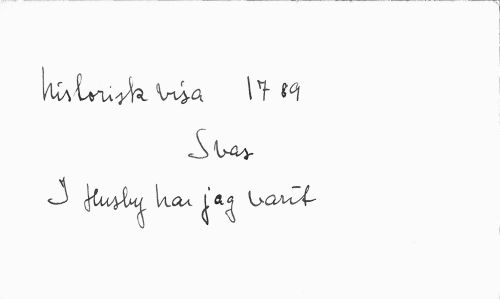 historisk visa 1789
Svas
I Husby har jag varit